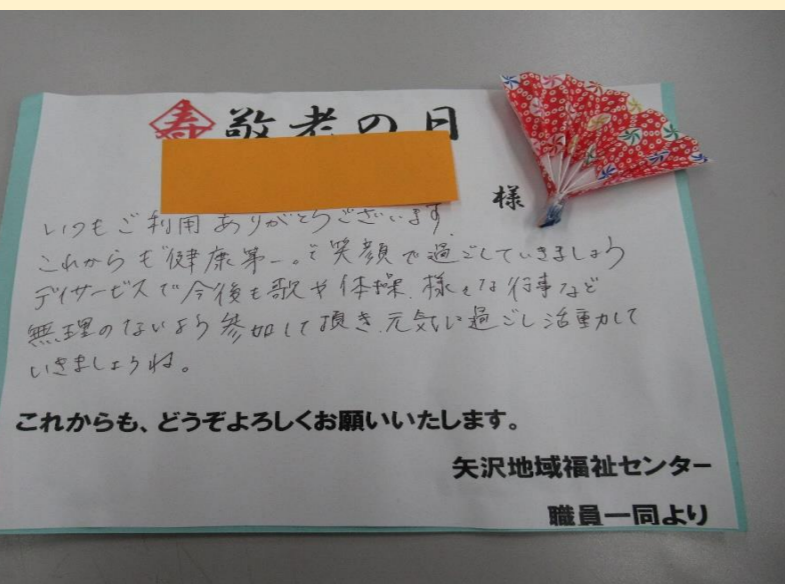 寿 敬老の日
様
いつもご利用ありがとうございます
これからも健康第一。で笑顔で過ごしていきましょう
デイサービスで今後も歌や体操、様々な行事など
無理のないよう参加して頂き、元気に過ごし活動して
いきましょうね。
これからも、どうぞよろしくお願いいたします。
矢沢地域福祉センター
職員一同より